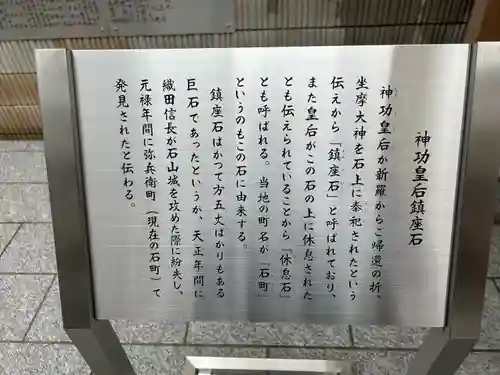 神功皇后鎮座石
神功皇后が新羅からご帰還の折、
坐摩大神を石上に奉祀されたという
伝えから「鎮座石」と呼ばれており、
また皇后がこの石の上に休息された
とも伝えられていることから「休息石」
とも呼ばれる。当地の町名が「石町」
というのもこの石に由来する。
鎮座石はかつて方五丈ばかりもある
巨石であったというが、天正年間に
織田信長が石山城を攻めた際に紛失し、
元禄年間に弥兵衛町（現在の石町）で
発見されたと伝わる。